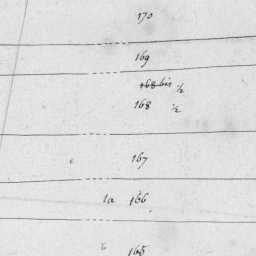 170
169
168 bis ½
168 ½
167
1a 166
165